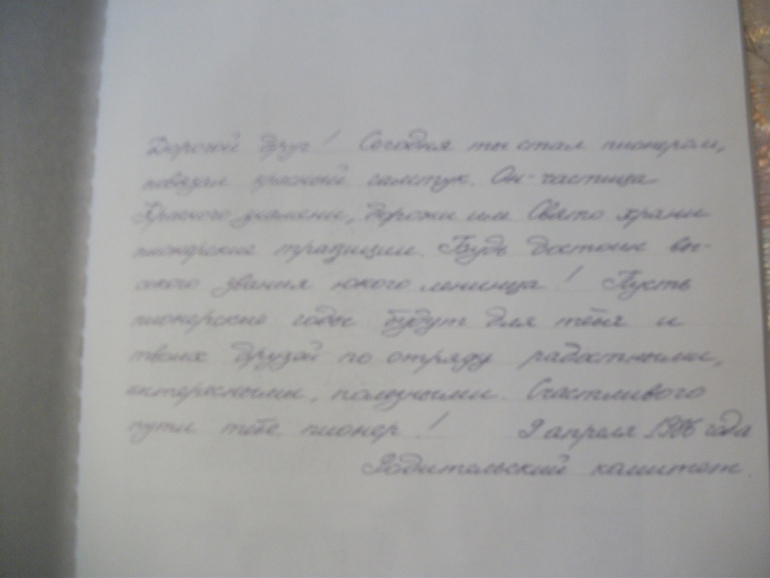 Дорогой друг! Сегодня ты стал пионером,
повязал красный галстук. Он- частица
Красного знамени, дорожи им. Свято храни
пионерские традиции. Будь достоин вы-
сокого звания юного ленинца! Пусть
пионерские годы будут для тебя и
твоих друзей по отряду радостными,
интересными, полезными. Счастливого
пути тебе, пионер! 9 апреля 1986 года
Родительский комитет.